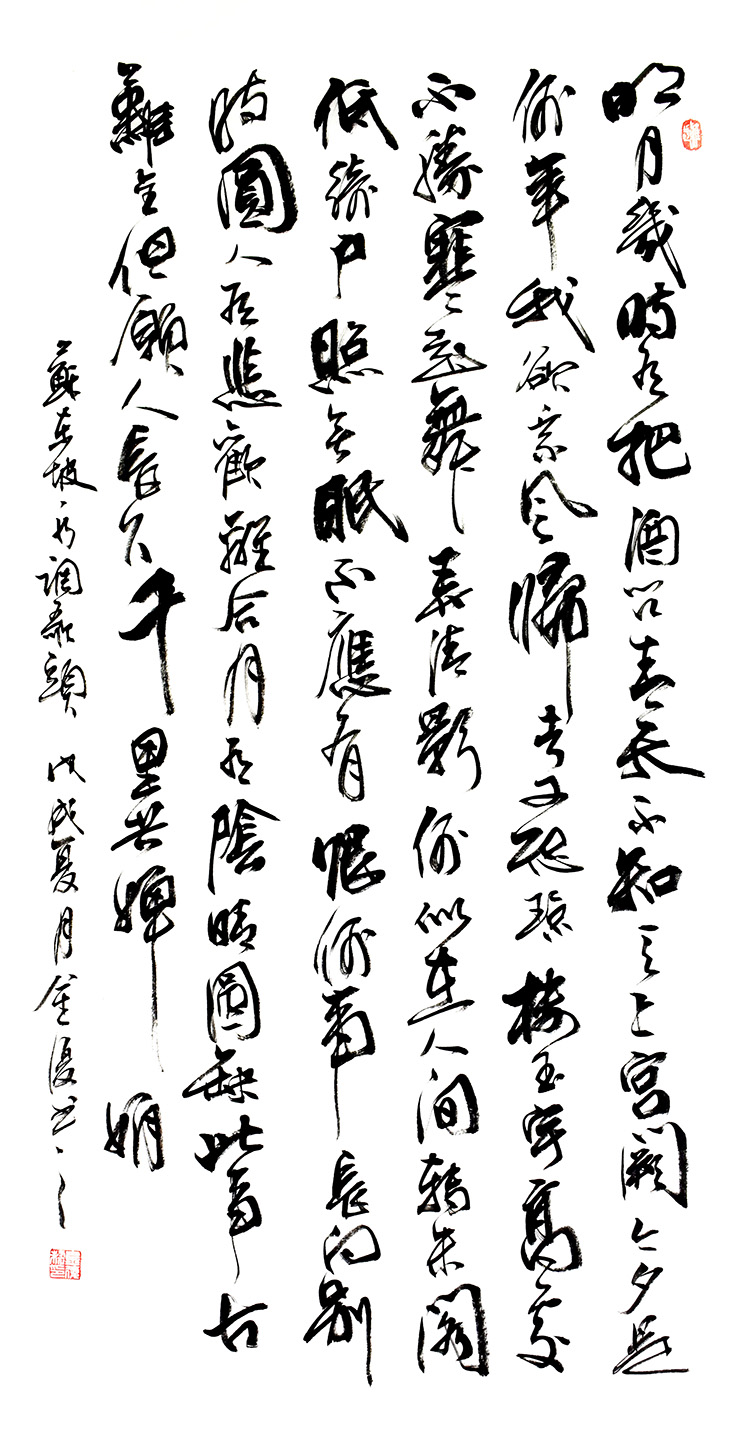 明月幾時有把酒問青天不知天上宮闕今夕是
何年我欲乘風歸去又恐瓊樓玉宇高處
不勝寒起舞弄清影何似在人間轉朱閣
低綺戶照無眠不應有恨何事長向別
時圓人有悲歡離合月有陰晴圓缺此事古
難全但願人長久千里共嬋娟
蘇東坡水調歌頭戊戌夏月金書